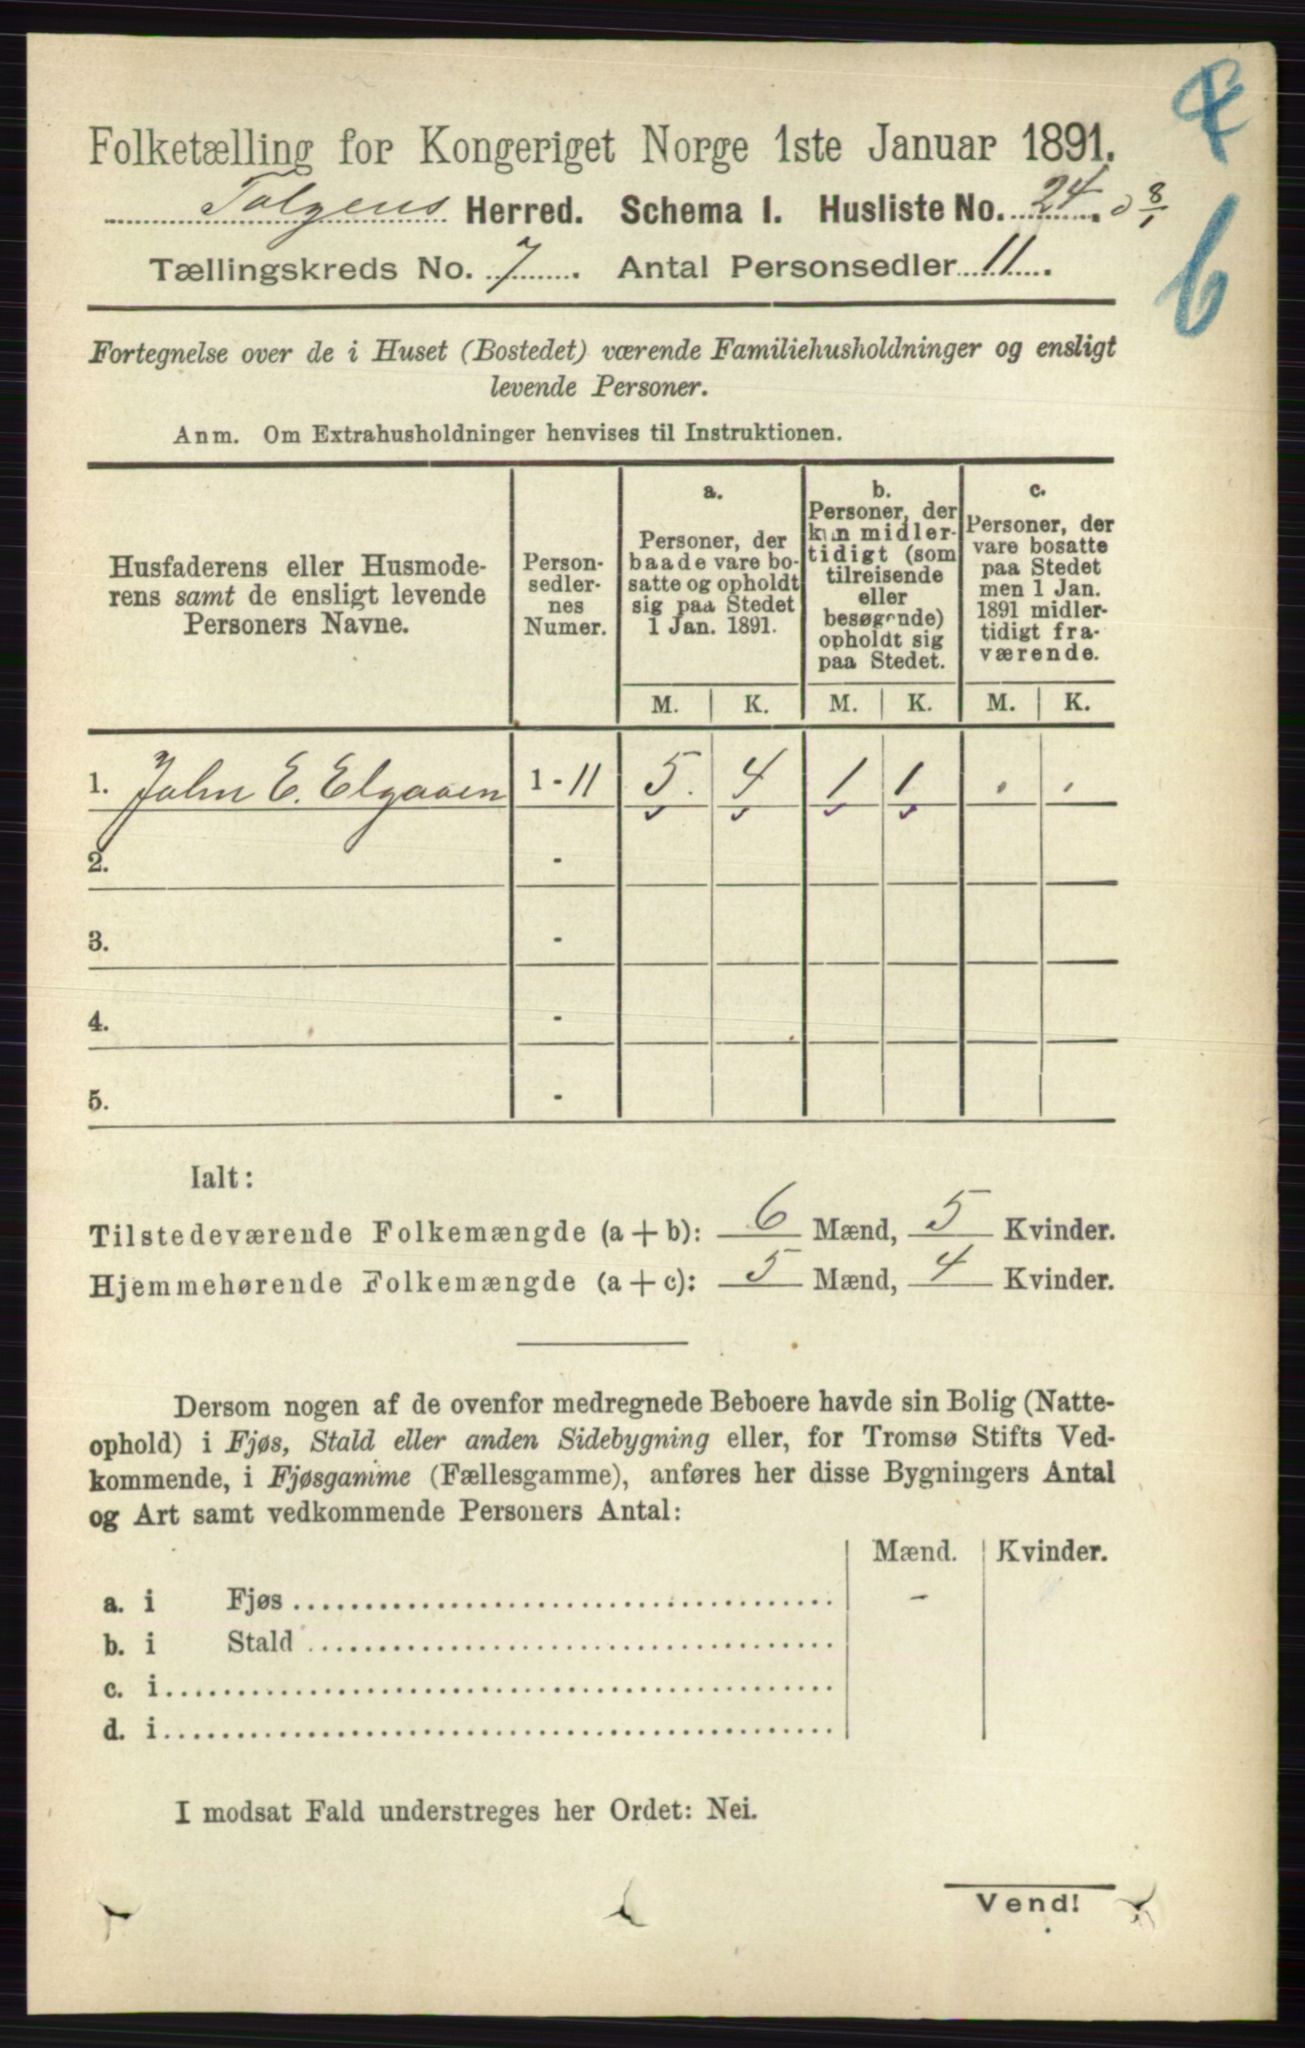 Folketælling for Kongeriget Norge 1ste Januar 1891.
Tolgens Herred. Schema I. Husliste No. 24. 8/1
Tællingskreds No. 7. Antal Personsedler 11.
6
Fortegnelse over de i Huset (Bostedet) værende Familiehusholdninger og ensligt
levende Personer.
Anm. Om Extrahusholdninger henvises til Instruktionen.
Husfaderens eller Husmode-
rens samt de ensligt levende
Personers Navne.
Person-
sedler-
nes
Numer.
a.
Personer, der
baade vare bo-
satte og opholdt
sig paa Stedet
1 Jan. 1891.
b.
Personer, der
kun midler-
tidigt (som
tilreisende
eller
besøgende)
opholdt sig
paa Stedet.
c.
Personer, der
vare bosatte
paa Stedet
men 1 Jan.
1891 midler-
tidigt fra-
værende.
M. K. M. K. M. K.
1. John E. Elgaaen 1 - 11 5. 4 1 1 . .
2. -
3. -
4. -
5. -
Ialt:
Tilstedeværende Folkemængde (a + b): 6 Mænd, 5 Kvinder.
Hjemmehørende Folkemængde (a + c): 5 Mænd, 4 Kvinder.
Dersom nogen af de ovenfor medregnede Beboere havde sin Bolig (Natte-
ophold) i Fjøs, Stald eller anden Sidebygning eller, for Tromsø Stifts Ved-
kommende, i Fjøsgamme (Fællesgamme), anføres her disse Bygningers Antal
og Art samt vedkommende Personers Antal:
Mænd. Kvinder.
a. i Fjøs -
b. i Stald
c. i
d. i
I modsat Fald understreges her Ordet: Nei.
Vend!